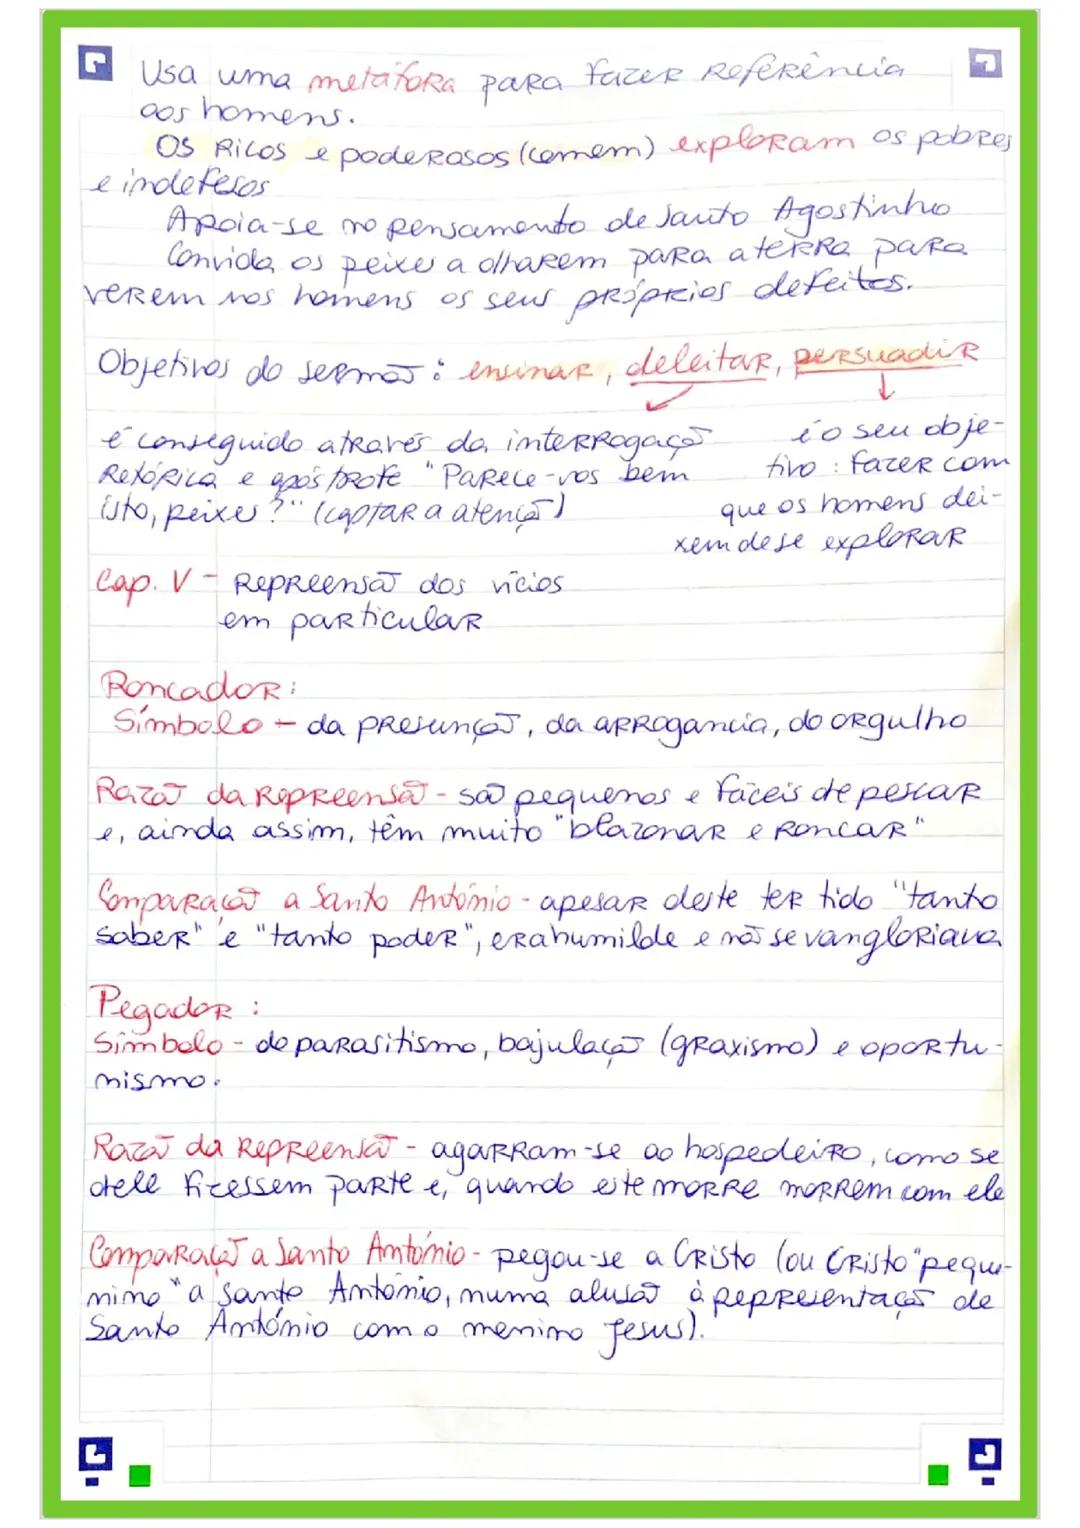 Usa uma metáfora para fazer referência
aos homens.
Os ricos e poderosos (comem) exploram os pobres
e indefesos
Apoia-se no pensamento de Santo Agostinho
Convida os peixes a olharem para a terra para
verem nos homens os seus próprios defeitos.
Objetivos do sermão: ensinar, deleitar, persuadir
é conseguido através da interrogação
retórica e apóstrofe "Parece-vos bem
isto, peixes?" (captar a atenção)
é o seu obje-
tivo: fazer com
que os homens dei-
xem de se explorar
Cap. V - Repreensão dos vícios
em particular
Roncador:
Símbolo - da presunção, da arrogancia, do orgulho
Razão da Repreensão - são pequenos e fáceis de pescar
e, ainda assim, têm muito "blazonar e roncar"
Comparação a Santo António - apesar deste ter tido "tanto
saber" e "tanto poder", era humilde e não se vangloriava
Pegador:
Símbolo - do parasitismo, bajulação (graxismo) e oportu-
nismo.
Razão da Repreensão - agarram-se ao hospedeiro, como se
dele fizessem parte e, quando este morre morrem com ele
Comparação a Santo António - pegou-se a Cristo (ou Cristo "peque-
nino" a Santo António, numa alusão à representação de
Santo António com o menino Jesus).